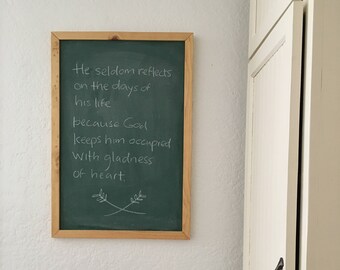 He seldom reflects
on the days of
his life
because God
keeps him occupied
with gladness
of heart